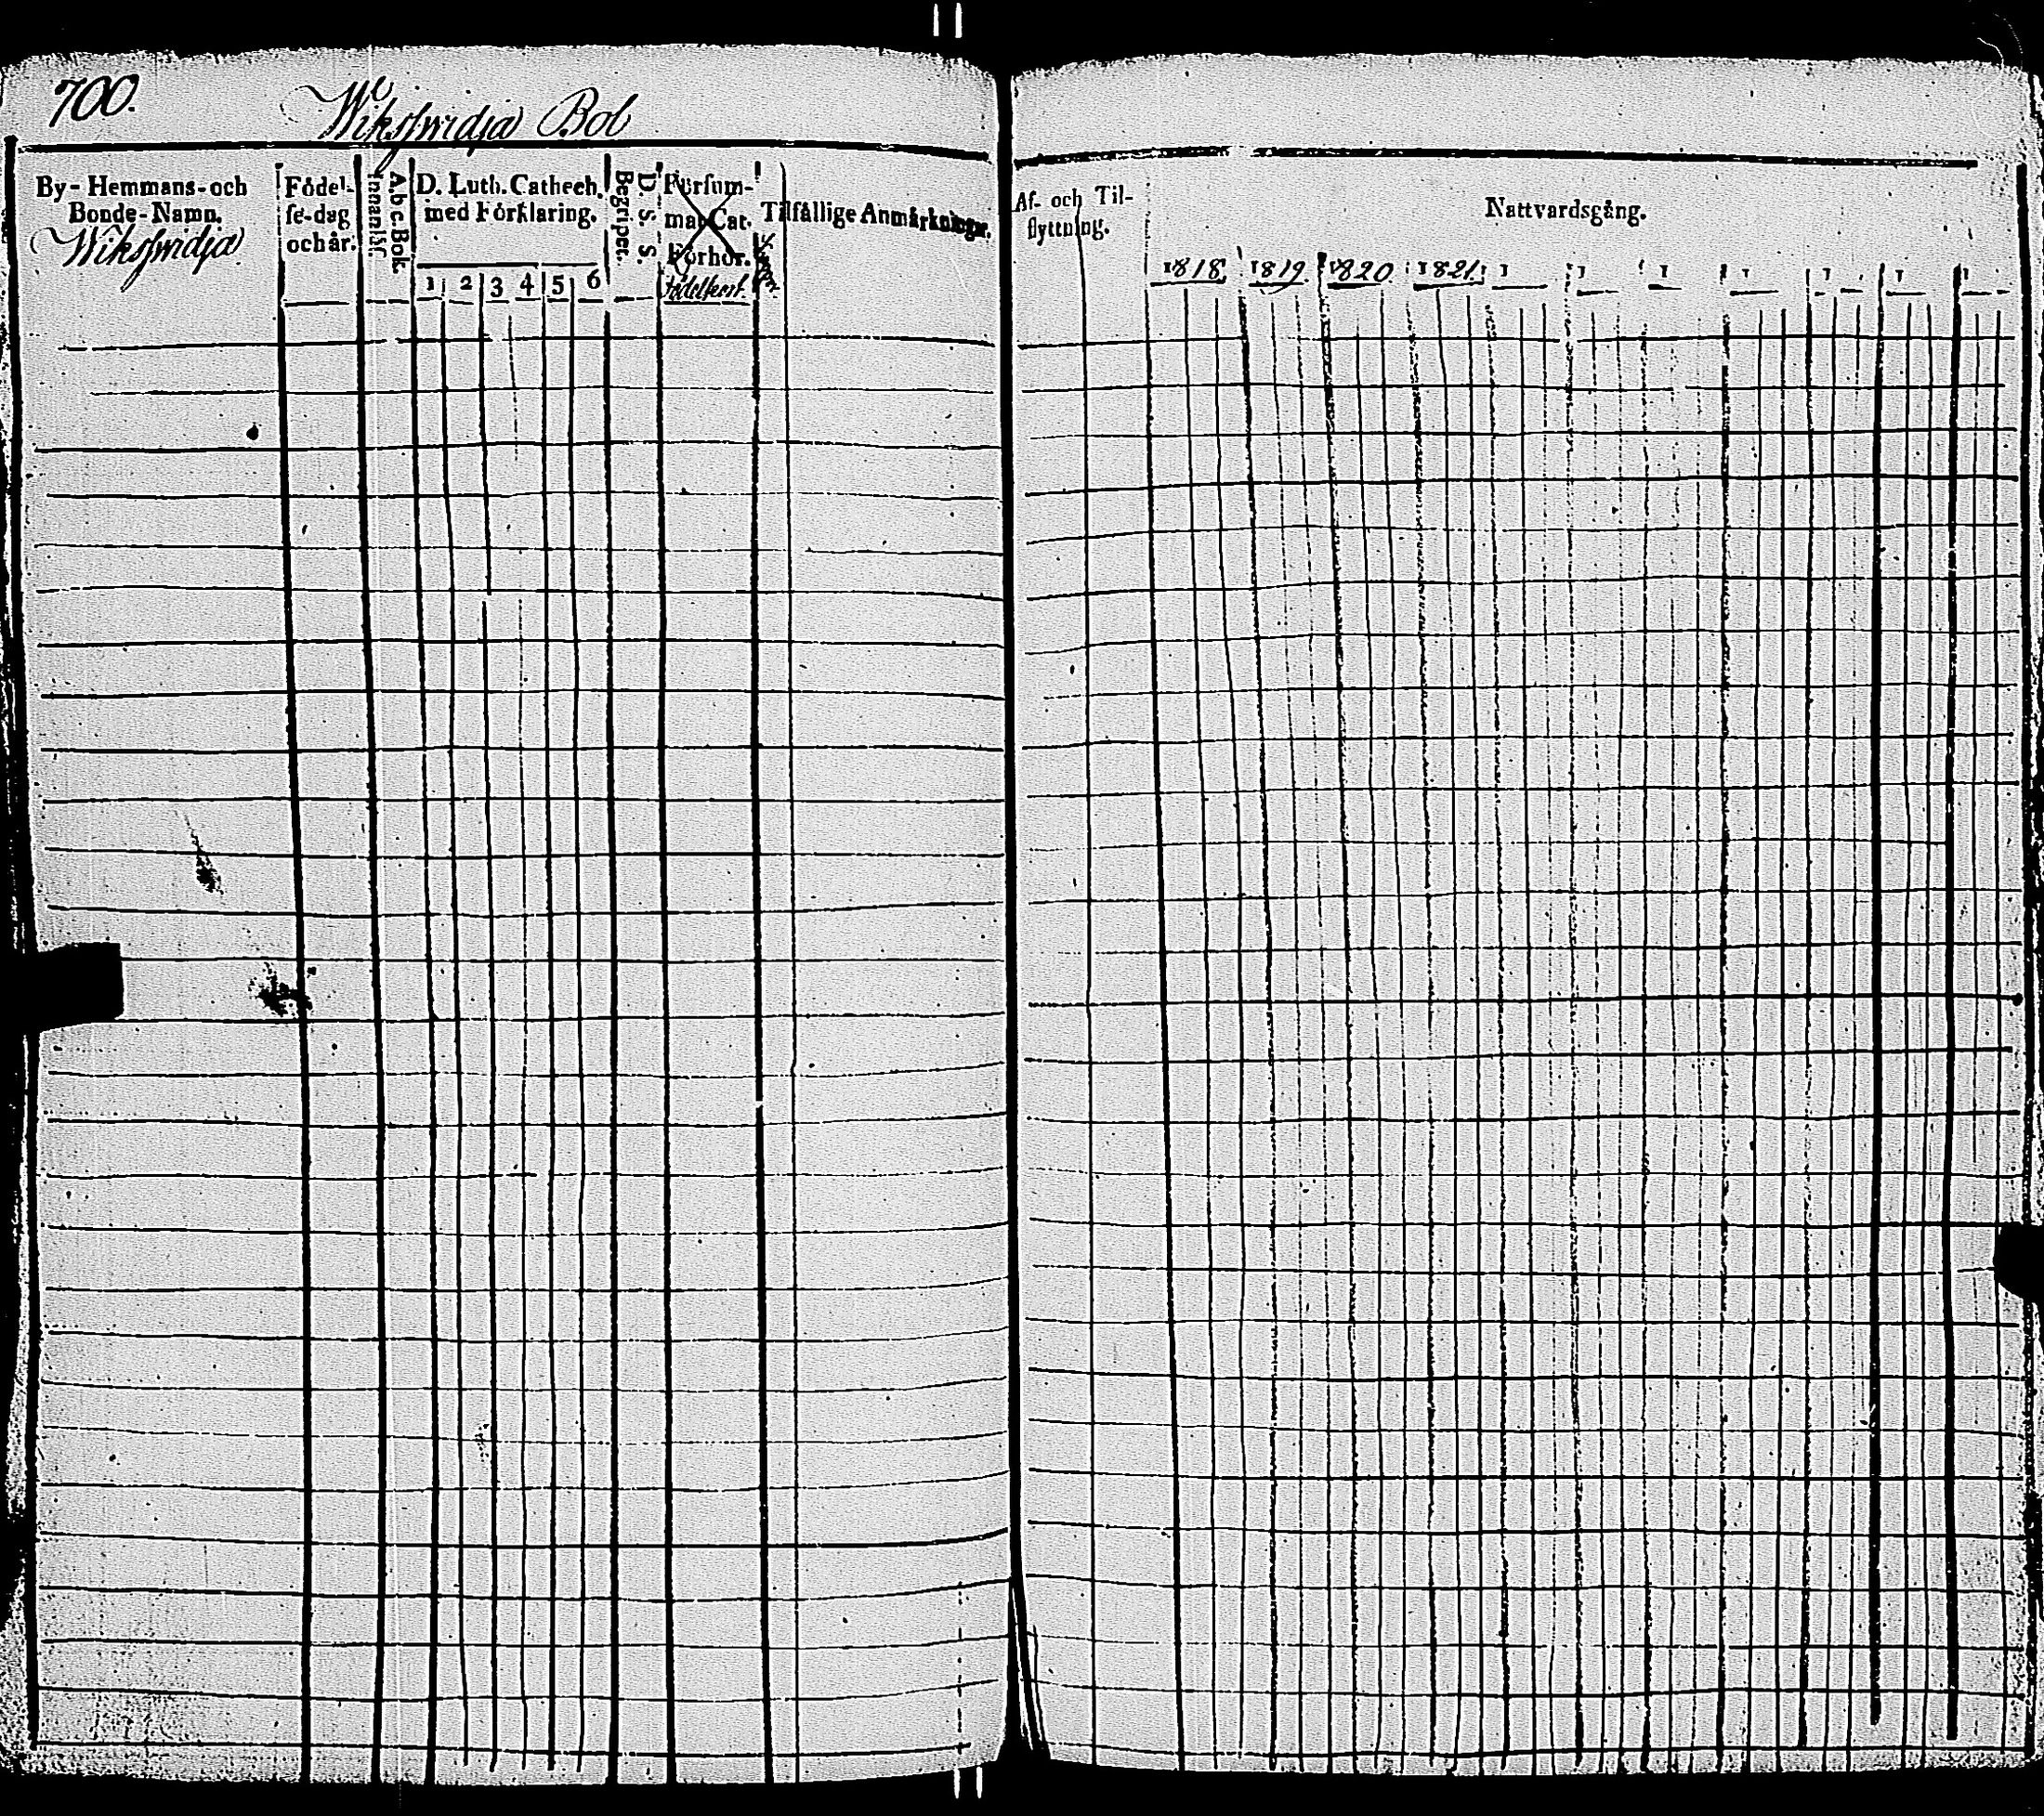 700.
Wiksmidja Bol
By- Hemmans- och
Bonde-Namn.
Wiksmidja
Födel-
se-dag
och år.
A.b.c. Bok.
Innanläs.
D. Luth. Cathech.
med Förklaring.
1 2 3 4 5 6
D. S. S.
Begripet.
Försum-
mat Cat.
Förhör.
Tilfällige Anmärkningar.
Af- och Til-
flyttning.
Nattvardsgång.
1818. 1819. 1820. 1821. 1 1 1 1 1 1 1